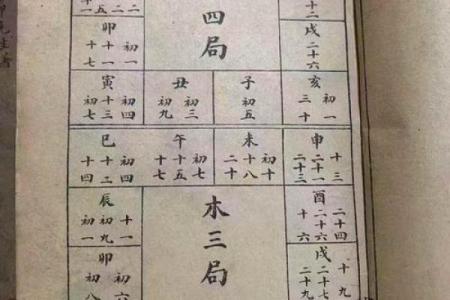 四局
戌
二十六
初一
卯十一
十七
初一
亥
三十
子初五
丑初三
初九
初四
寅十三
初七
十三
申二十一
二十三
初十
未十八
二十
初七
午十五
十七
初四
巳十二
十四
木三局
二十四
酉二十六
十六
十一
辰初九
初一
十九
戌二十七
二十九
初六
卯
初八